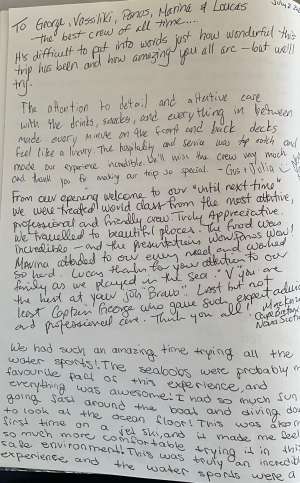 July 2
To George, Vassiliki, Panos, Marina & Loucas
- the best crew of all time....
It's difficult to put into words just how wonderful this
trip has been and how amazing you all are - but we'll
try.
The attention to detail and attentive care
with the drinks, snacks, and everything in between
made every minute on the front and back decks
feel like a luxury. The hospitality and service was top notch and
made our experience incredible. We'll miss the crew very much
and thank you for making our trip so special. - Gus + Julia
From our opening welcome to our "until next time"
we were treated world class from the most attentive,
professional and friendly crew. Truly Appreciative.
We travelled to beautiful places. The food was
incredible - and the presentations wondrous
Marina attended to our every need and worked
so hard. Lucas thanks for your attention to our
family as we played in the sea. "V you are
the best at your job Bravo". Last but not
least Captain George who gave such expert advice
and professional care. Thank you all!
Cape Breton
Nova Scotia
We had such an amazing time trying all the
water sports! The seabobs were probably m
favourite part of this experience, and
everything was awesome! I had so much fun
going fast around the boat and diving do
to look at the ocean floor! This was also m
first time on a jet ski, and it made me feel
so much more comfortable trying it in this
safe environment! This was truly an incredib
experience and the water sports were a